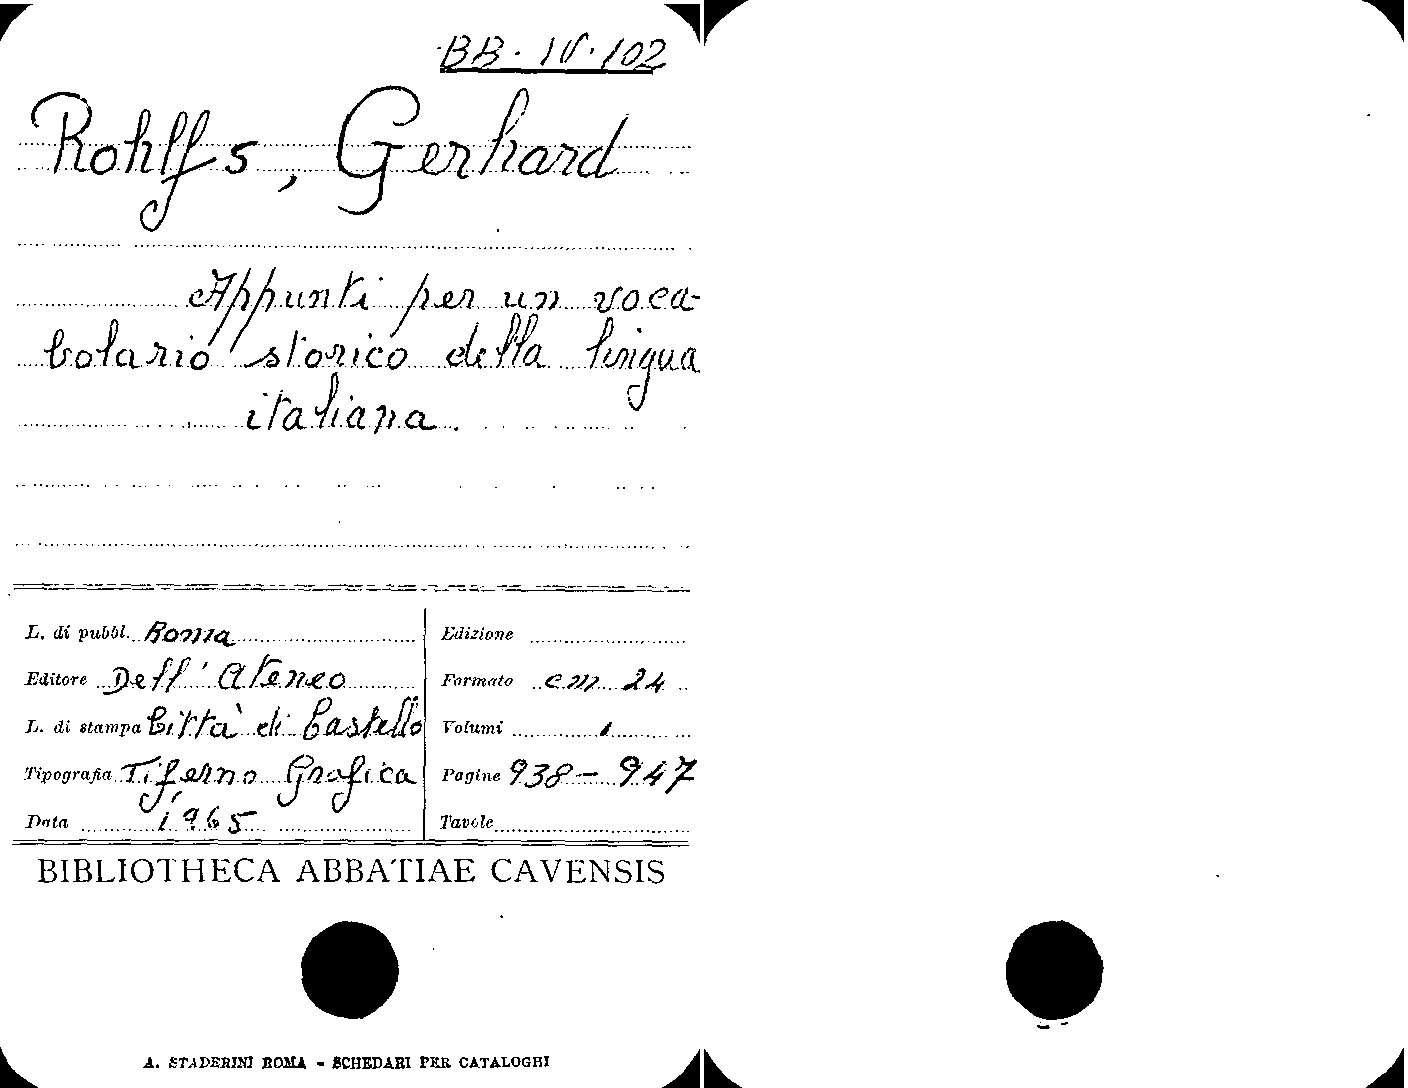 BB. IV. 102
Rohlfs, Gerhard
Appunti per un voca-
bolario storico della lingua
italiana.
L. di pubbl. Roma
Editore Dell' Ateneo
L. di stampa Città di Castello
Tipografia Tiferno Grafica
Data 1965
Edizione
Formato cm 24
Volumi 1
Pagine 938-947
Tavole
BIBLIOTHECA ABBATIAE CAVENSIS
A. STADERINI ROMA - SCHEDARI PER CATALOGHI